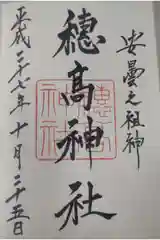 安曇之祖神
穂高神社
平成二十七年十月二十五日